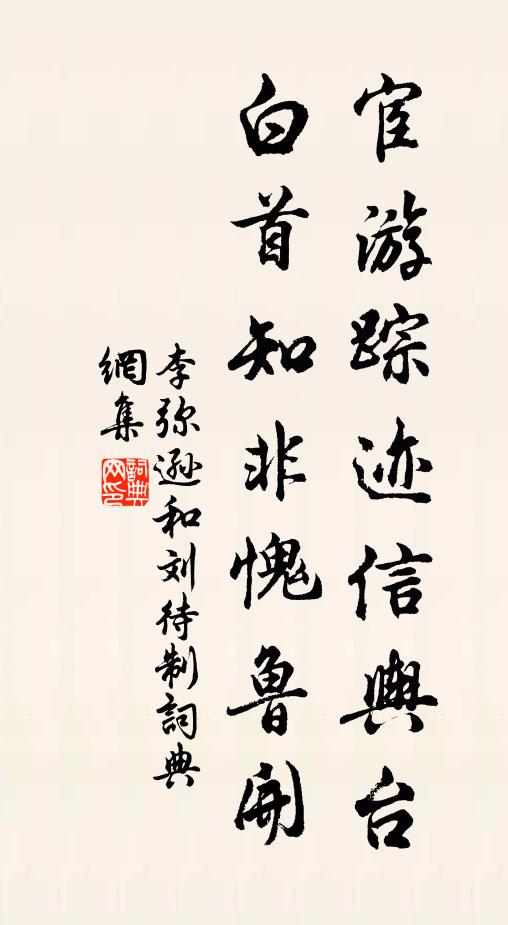 宦游踪迹信舆台
白首知非愧鲁开
李弥逊和刘待制詞典
網集
詞典
网印